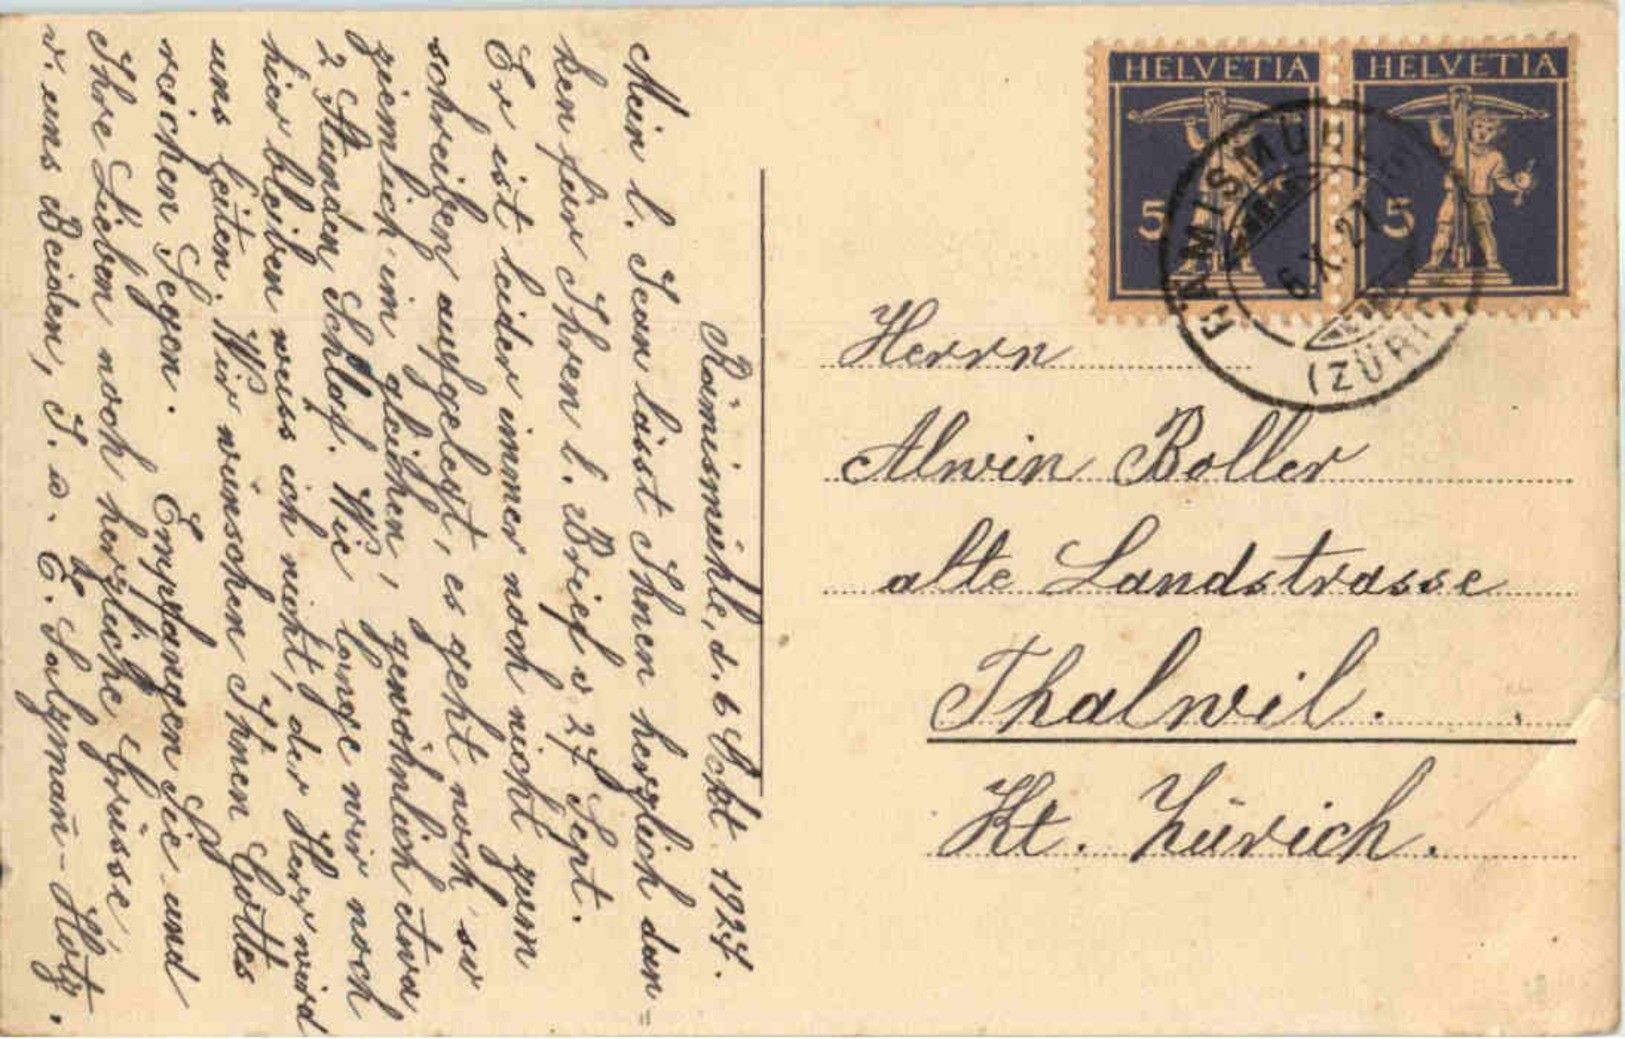 Rämismühle, d. 6 Okt. 1927.
Mein l. Jean lässt Ihnen herzlich dan=
ken für Ihren l. Brief v 27 Sept.
Er ist leider immer noch nicht zum
schreiben aufgelegt, es geht noch so
ziemlich im gleichen, gewöhnlich etwa
2 Stunden Schlaf. Wie lange wir noch
hier bleiben weiss ich nicht, der Herr wird
uns leiten. Wir wünschen Ihnen Gottes
reichen Segen. Empfangen Sie und
Ihre Lieben noch herzliche Grüsse,
v. uns Beiden, J. u. E. Salzmañ-Hotz.
HELVETIA
5
HELVETIA
5
RÄMISMÜHLE
6.X.27
(ZÜRICH)
Herrn
Alwin Boller
alte Landstrasse
Thalwil.
Kt. Zürich.